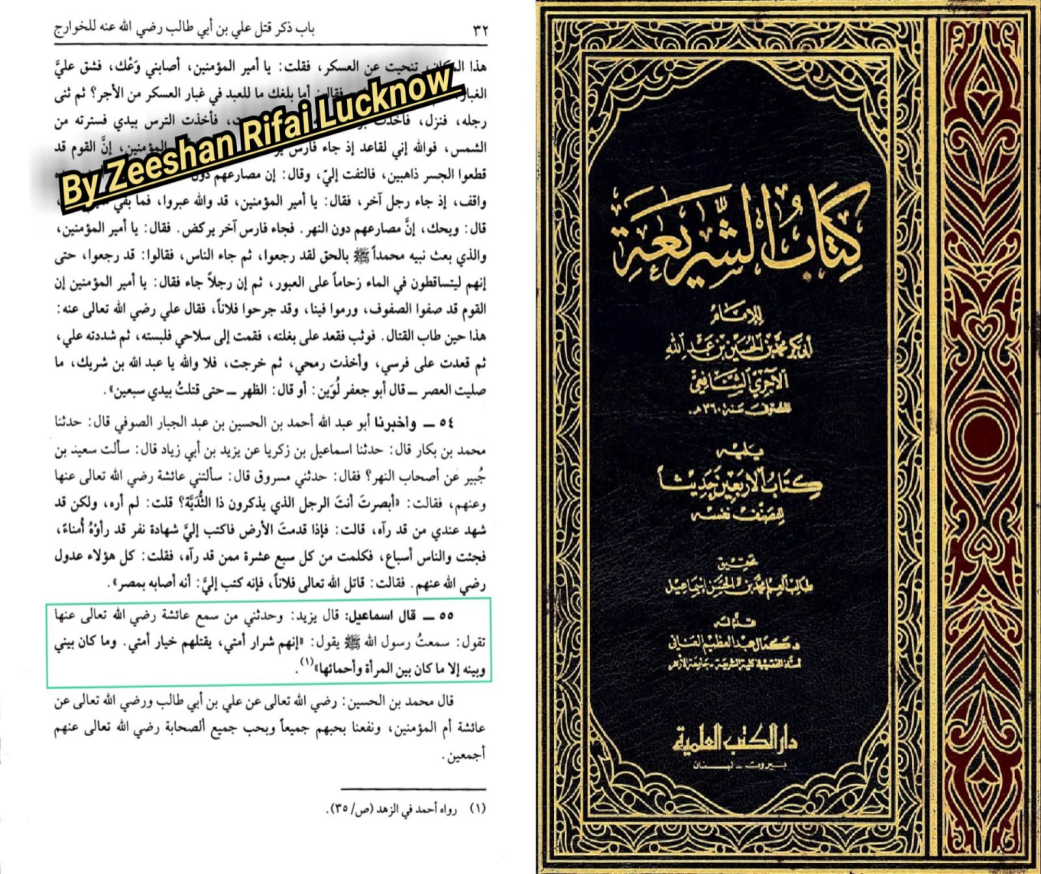 باب ذكر قتل علي بن أبي طالب رضي الله عنه للخوارج ٣٢
هذا تنحيت عن العسكر، فقلت: يا أمير المؤمنين، أصابني وَعْك، فشق عليَّ
أما بلغك ما للعبد في غبار العسكر من الأجر؟ ثم ثنى
رجله، فنزل، فأخذت الترس بيدي فسترته من
الشمس، فوالله إني لقاعد إذ جاء فارس المؤمنين، إنَّ القوم قد
قطعوا الجسر ذاهبين، فالتفت إليّ، وقال: إن مصارعهم دون
واقف، إذ جاء رجل آخر، فقال: يا أمير المؤمنين، قد والله عبروا، فما بقي
قال: ويحك، إنَّ مصارعهم دون النهر. فجاء فارس آخر يركض. فقال: يا أمير المؤمنين،
والذي بعث نبيه محمداً ﷺ بالحق لقد رجعوا، ثم جاء الناس، فقالوا: قد رجعوا، حتى
إنهم ليتساقطون في الماء زحاماً على العبور، ثم إن رجلاً جاء فقال: يا أمير المؤمنين إن
القوم قد صفوا الصفوف، ورموا فينا، وقد جرحوا فلاناً، فقال علي رضي الله عنه:
هذا حين طاب القتال. فوثب فقعد على بغلته، فقمت إلى سلاحي فلبسته، ثم شددته علي،
ثم قعدت على فرسي، وأخذت رمحي، ثم خرجت، فلا والله يا عبد الله بن شريك، ما
صليت العصر ــ قال أبو جعفر لُوَين: أو قال: الظهر ــ حتى قتلتُ بيدي سبعين».
٥٤ ــ وأخبرنا أبو عبد الله أحمد بن الحسين بن عبد الجبار الصوفي قال: حدثنا
محمد بن بكار قال: حدثنا اسماعيل بن زكريا عن يزيد بن أبي زياد قال: سألت سعيد بن
جُبير عن أصحاب النهر؟ فقال: حدثني مسروق قال: سألتني عائشة رضي الله تعالى عنها
وعنهم، فقالت: «أبصرتَ أنتَ الرجل الذي يذكرون ذا الثُّدَيَّة؟ قلت: لم أره، ولكن قد
شهد عندي من قد رآه، قالت: فإذا قدمتَ الأرض فاكتب إليَّ شهادة نفر قد رأوْهُ أُمناءً،
فجئت والناس أسباع، فكلمت من كل سبع عشرة ممن قد رآه، فقلت: كل هؤلاء عدول
رضي الله عنهم. فقالت: قاتل الله تعالى فلاناً، فإنه كتب إليَّ: أنه أصابه بمصر».
٥٥ ــ قال اسماعيل: قال يزيد: وحدثني من سمع عائشة رضي الله تعالى عنها
تقول: سمعتُ رسول الله ﷺ يقول: «إنهم شرار أمتي، يقتلهم خيار أمتي. وما كان بيني
وبينه إلا ما كان بين المرأة وأحمائها»(١).
قال محمد بن الحسين: رضي الله تعالى عن علي بن أبي طالب ورضي الله تعالى عن
عائشة أم المؤمنين، ونفعنا بحبهم جميعاً وبحب جميع الصحابة رضي الله تعالى عنهم
أجمعين.
(١) رواه أحمد في الزهد (ص/٣٥).
By Zeeshan Rifai Lucknow
كتاب الشريعة
للإمام
أبي بكر محمد بن الحسين بن عبد الله
الآجري الشافعي
المتوفى سنة ٣٦٠هـ.
يليه
كتاب الأربعين حديثاً
للمصنف نفسه
تحقيق
محمد بن الحسن إسماعيل
قدم له
د. كمال عبد العظيم العناني
كلية الشريعة - جامعة الأزهر
دار الكتب العلمية
بيروت - لبنان